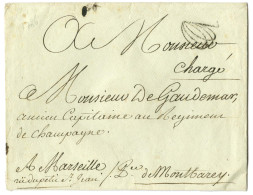 A Monsieur
Chargé
A Monsieur De Gaudemar,
ancien Capitaine au Regiment
de Champagne.
A Marseille
rue du petit St. Jean / De Montbarey